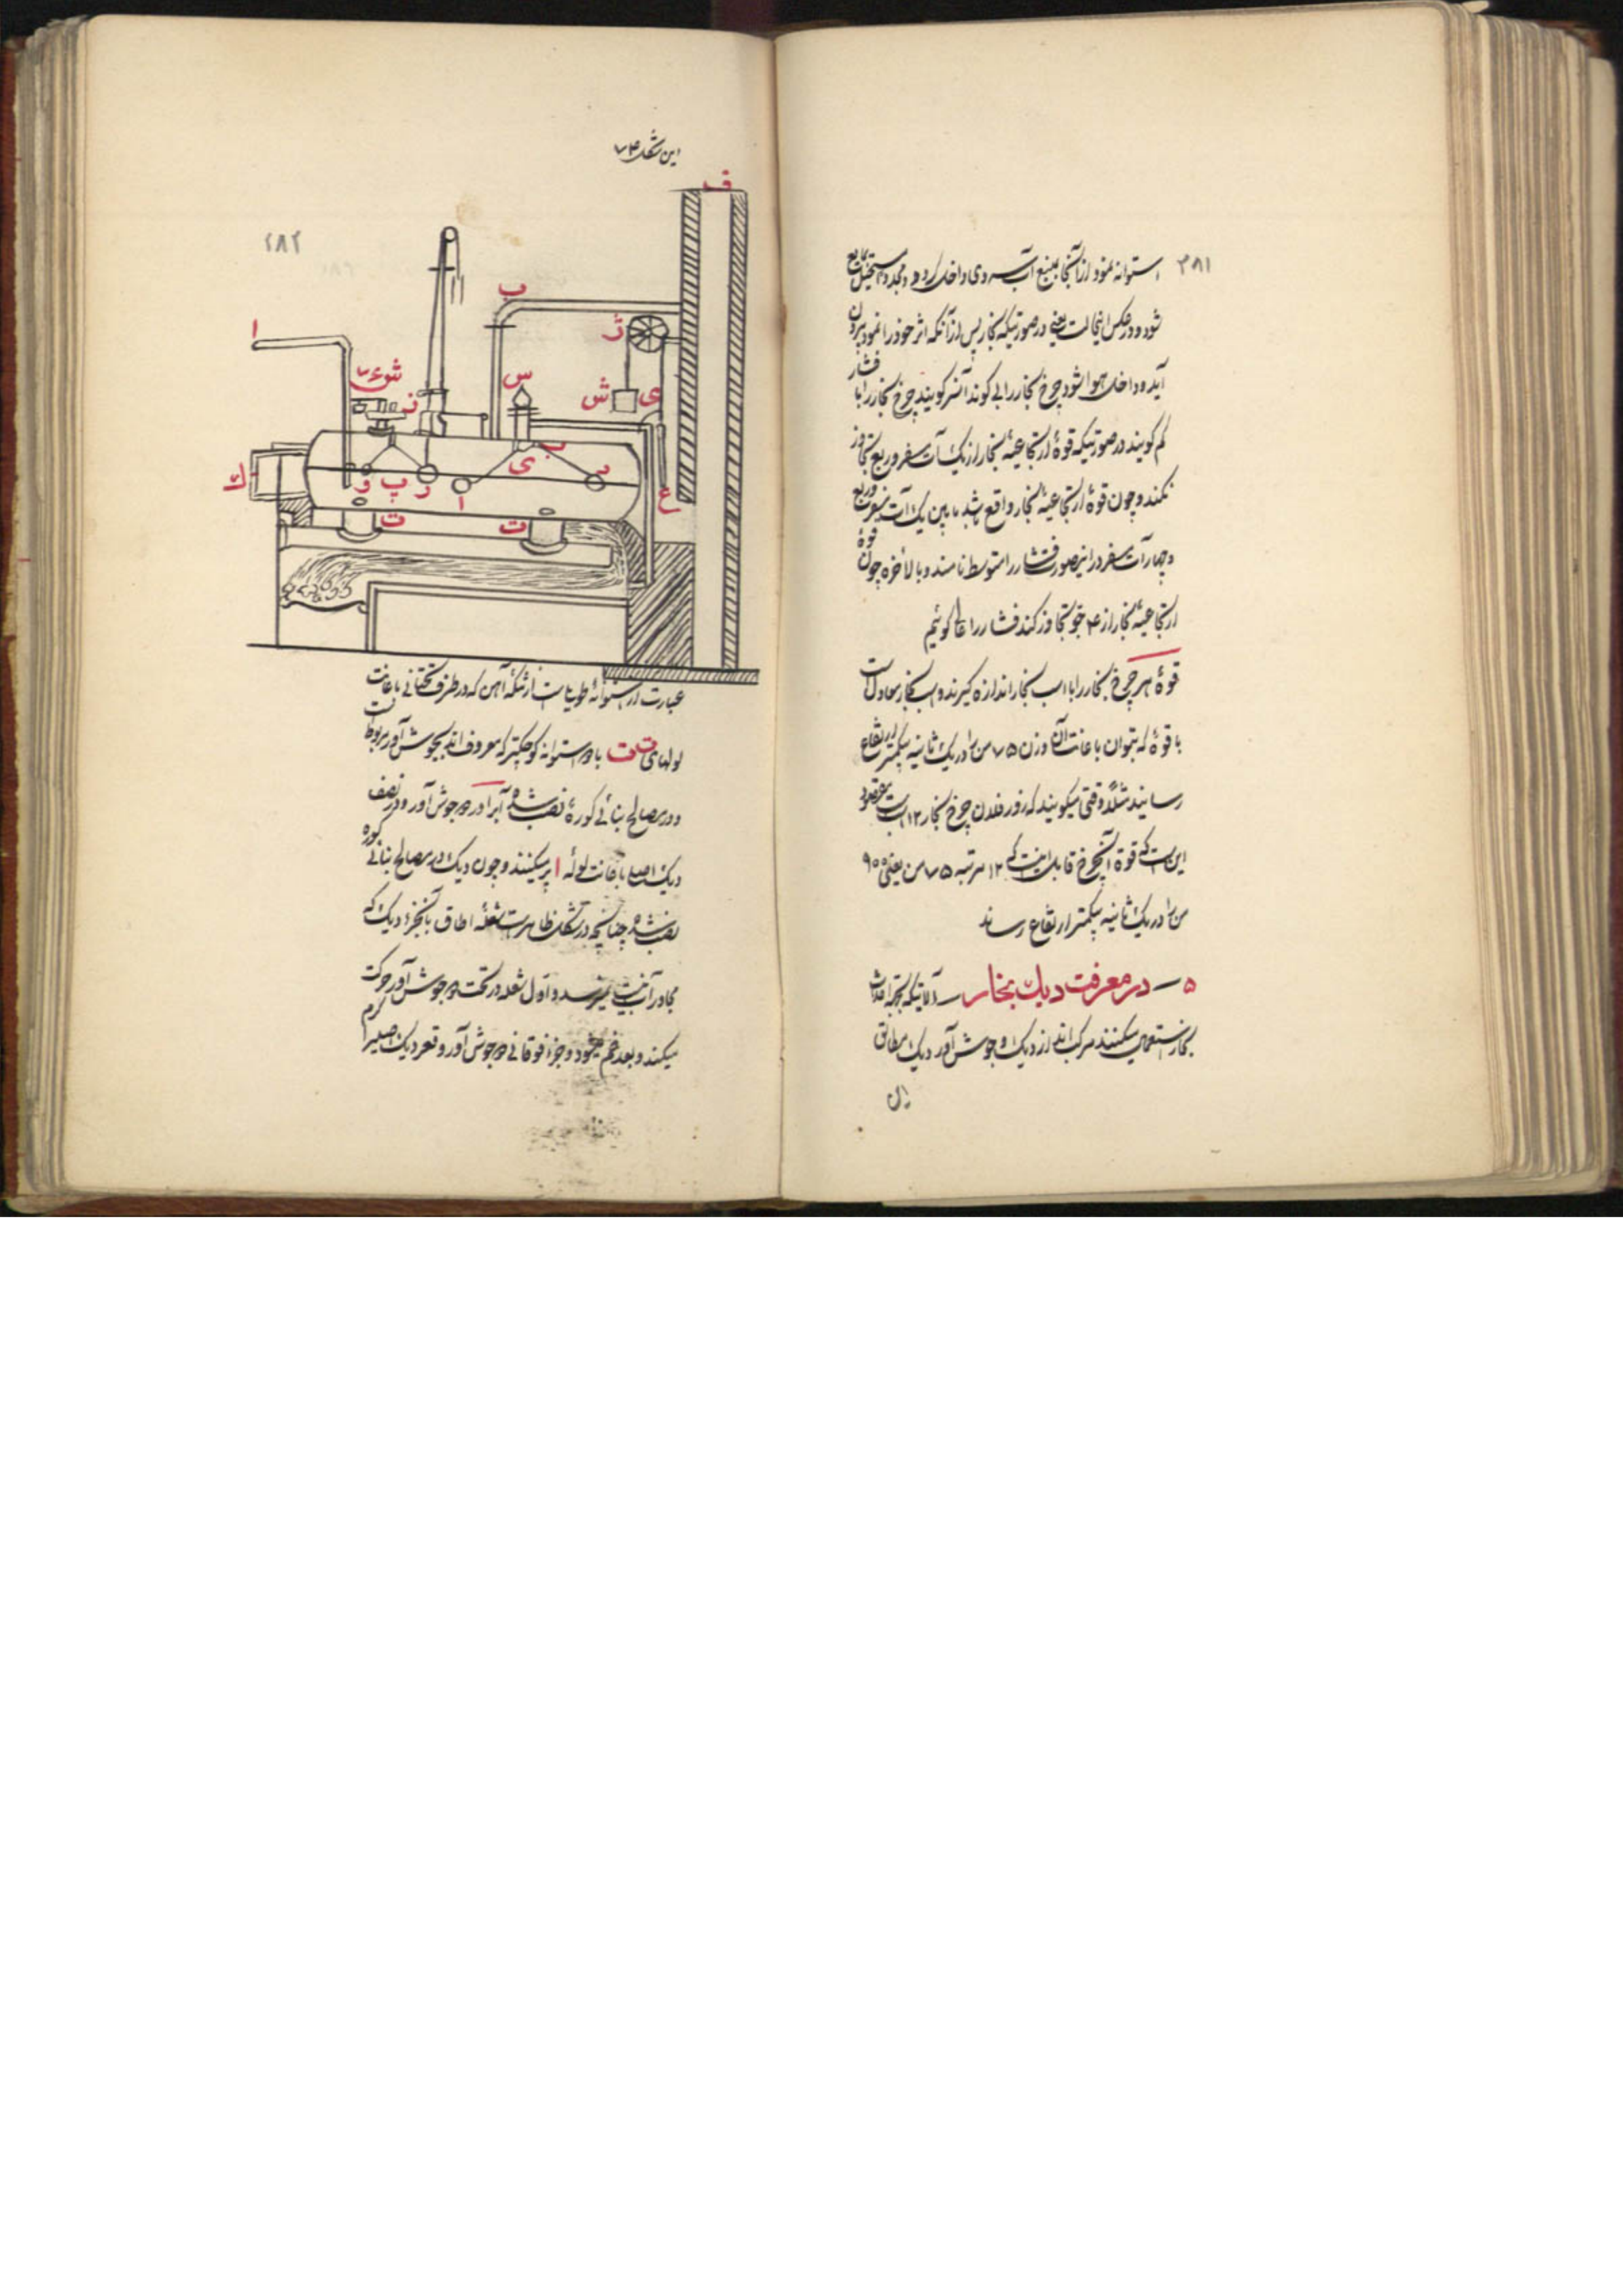 ۳۸۱
استوانه نمود از آنجا بمنبع آب سردی داخل کرده و مجدداً مستحیل بمایع
شود و در عکس اینحالت یعنی در صورتیکه بخار پس از آنکه اثر خود را نمود بیرون
آید و داخل هوا شود چرخ بخار را بی کوندانسر گویند چرخ بخار را با فشار
کم گویند در صورتیکه قوهٔ ارتجاعیهٔ بخار از یک آتمسفر و ربع تجاوز
نکند و چون قوهٔ ارتجاعیهٔ بخار واقع باشد مابین یک آتمسفر و ربع
و چهار آتمسفر در اینصورت فشار را متوسط نامند و بالاخره چون قوهٔ
ارتجاعیهٔ بخار از ۴ جو تجاوز کند فشار را عالی گوئیم
قوهٔ هر چرخ بخار را با اسب بخار اندازه گیرند و اسب بخار معادلست
با قوهٔ که بتوان باعانت آن وزن ۷۵ من را در یک ثانیه بیکمتر ارتفاع
رسانید مثلاً وقتی میگویند که زور فلان چرخ بخار ۱۲ اسب است مقصود
این است که قوهٔ آنچرخ قابل اینست که ۱۲ مرتبه ۷۵ من یعنی ۹۰۰
من را در یک ثانیه بیکمتر ارتفاع رساند
۵ — در معرفت دیک بخار — آلاتیکه بجهة احداث
بخار استعمال میکنند مرکب اند از دیک و جوش آور دیک مطابق
این شکل ۷۴
۲۸۲
ف
ب
ا
ژ
شوء
س
ش
ی
ن
ب
ی
ر
ك
و
پ
ر
ا
ع
ت
ت
عبارت از استوانهٔ طویلی است از تنکهٔ آهن که در طرف تحتانی باعانت
لولهای ت ت با دو استوانه کوچکتر که معروف اند بجوش آور مربوط است
و در مصالح بنائی کورهٔ نصب شده آب را در دو جوش آور و در نصف
دیک اصلی باعانت لولهٔ ا پر میکنند و چون دیک در مصالح بنائی کوره
نصب شده چنانچه در شکل ظاهر است شعلهٔ اطاق بآنجزء دیک که
مجاور آب نیست نمیرسد و اول شعله در تحت دو جوش آور حرکت
میکند و بعد خم میشود و جزء فوقانی دو جوش آور و قعر دیک اصلی را گرم